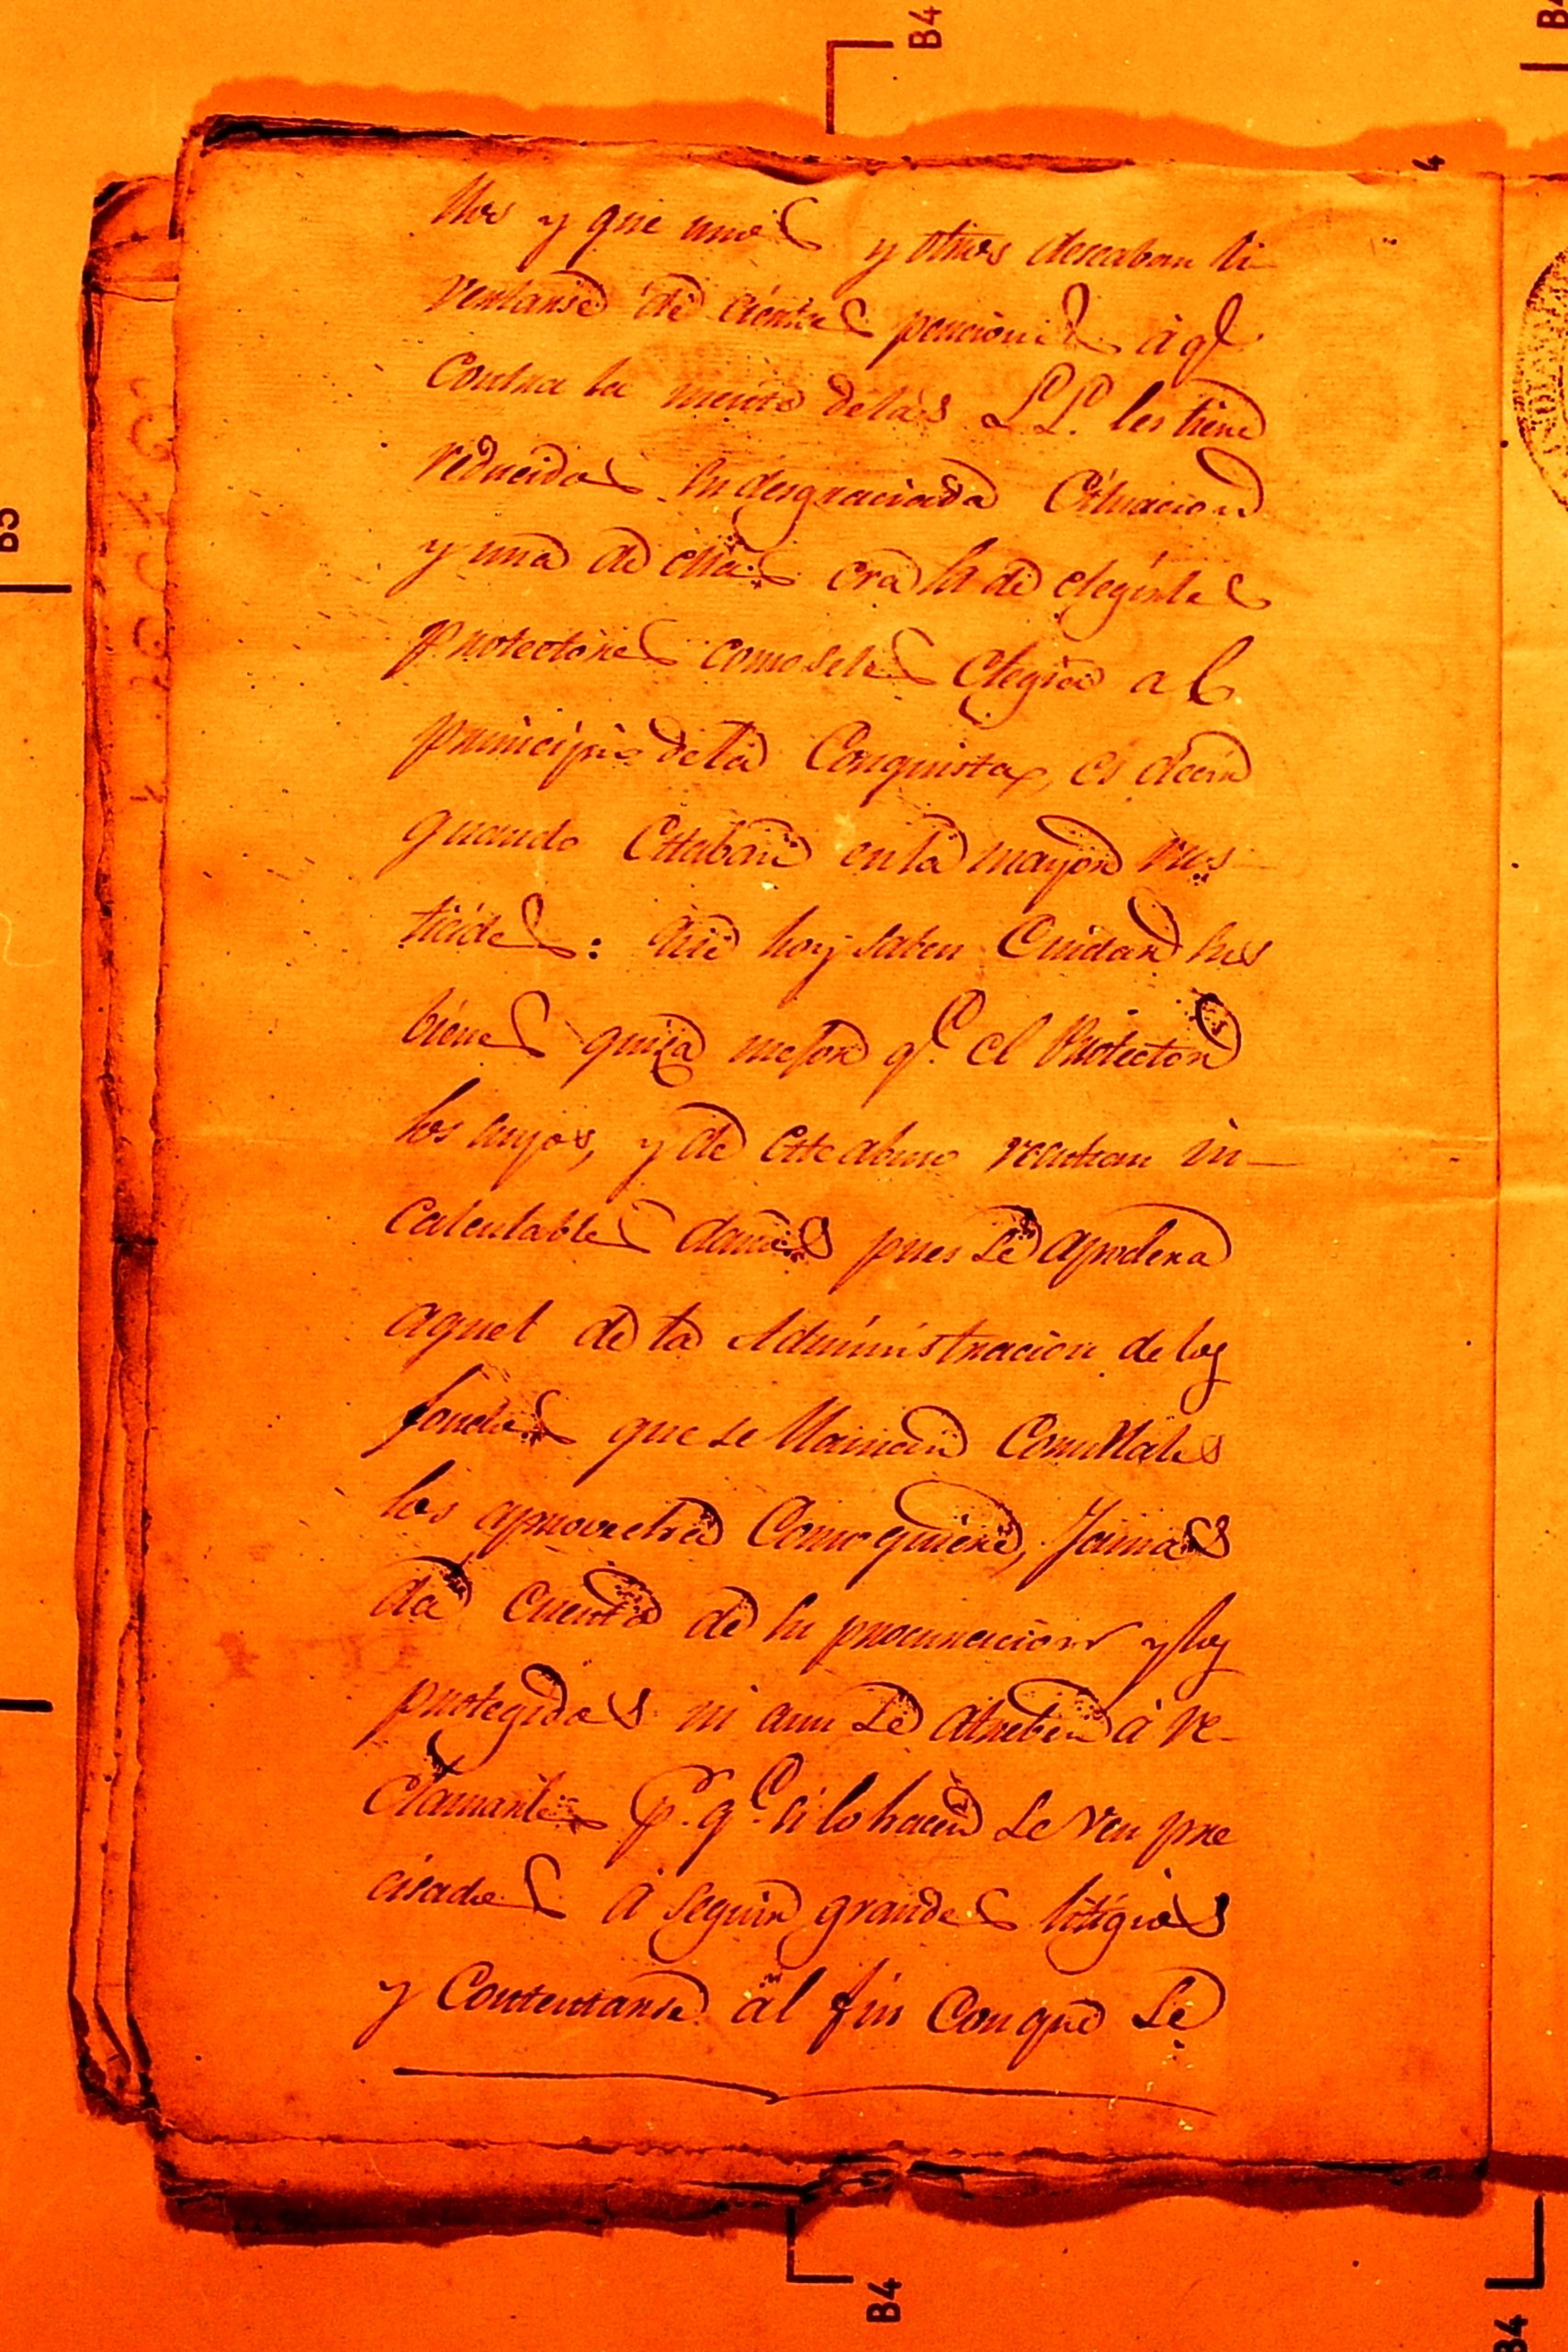 B4
4
llos y que unos y otros deseaban li
vertarse de ciertas penciones à qe
contra la mente de las L.L. les tiene
reducidos su desgraciada Cituacion
y una de ellas era la de elegirles
protectores como seles eligio al
principio dela Conquista, es decir
quando Estaban en la mayor rus-
ticides: que hoy saben Cuidar sus
bienes quiza mejor qe. el Protector
los suyos, y de este abuso resultan in-
calculables daños pues se apodera
aquel de la Administracion de los
fondos que se llaman Comunales
los aprovecha Como quiere, Jamas
da cuenta de su procuracion y los
protegidos ni aun se atreben à re-
clamarles pr. qe. si lo hacen se ven pre
cisados à seguir grandes litigios
y contentarse al fin con que se
B4